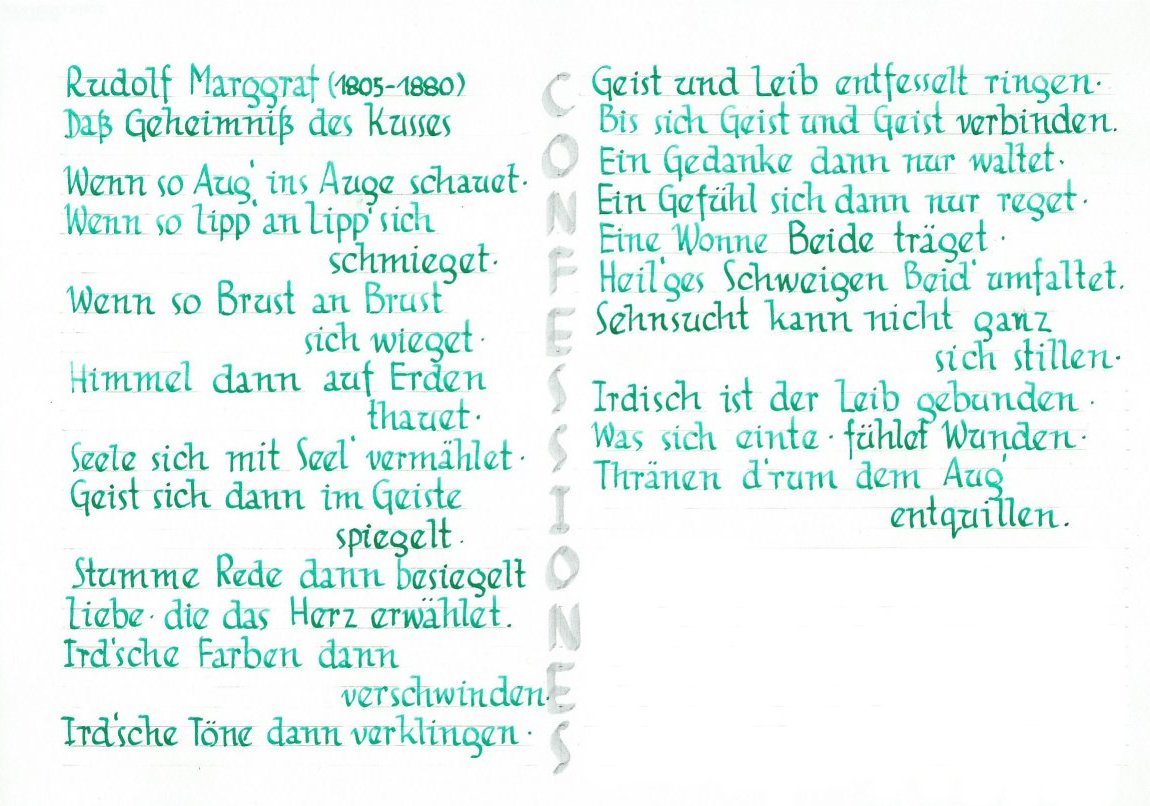 Rudolf Marggraf (1805-1880)
Daß Geheimniß des Kusses
Wenn so Aug' ins Auge schauet·
Wenn so Lipp' an Lipp' sich
schmieget·
Wenn so Brust an Brust
sich wieget·
Himmel dann auf Erden
thauet·
Seele sich mit Seel' vermählet·
Geist sich dann im Geiste
spiegelt·
Stumme Rede dann besiegelt
Liebe· die das Herz erwählet.
Ird'sche Farben dann
verschwinden·
Ird'sche Töne dann verklingen·
CONFESSIONES
Geist und Leib entfesselt ringen·
Bis sich Geist und Geist verbinden.
Ein Gedanke dann nur waltet·
Ein Gefühl sich dann nur reget·
Eine Wonne Beide träget·
Heil'ges Schweigen Beid' umfaltet.
Sehnsucht kann nicht ganz
sich stillen·
Irdisch ist der Leib gebunden·
Was sich einte· fühlet Wunden·
Thränen d'rum dem Aug'
entquillen.